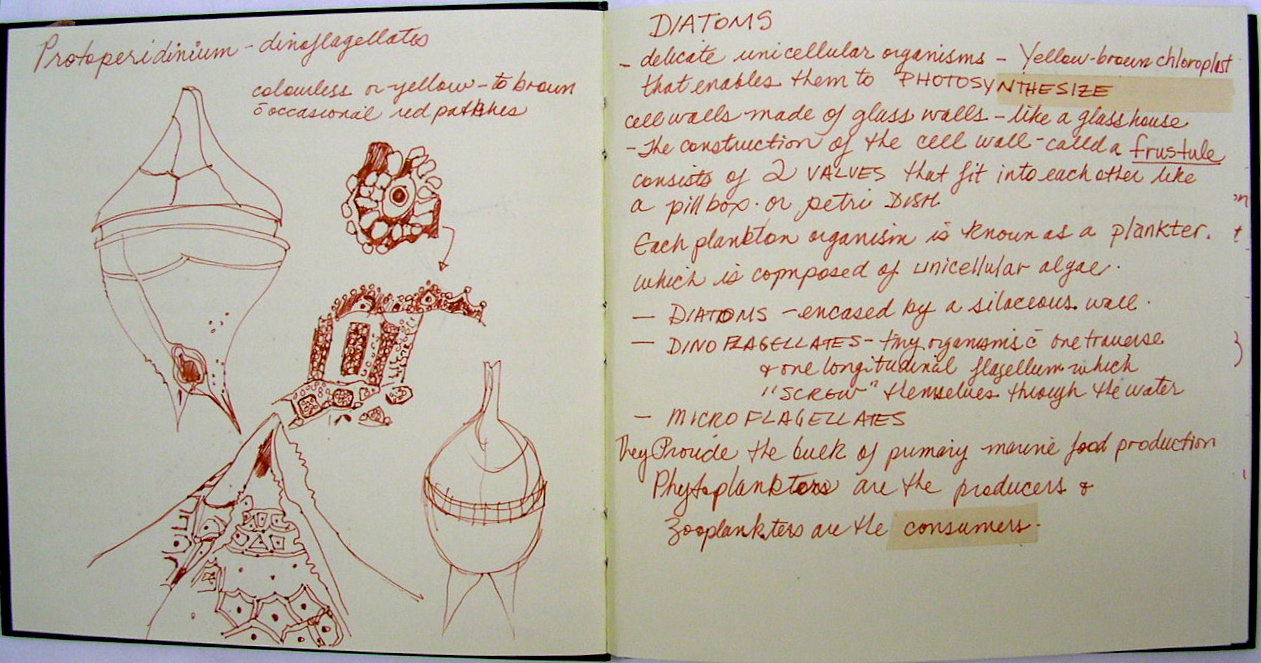 Protoperidinium - dinoflagellates
colourless or yellow - to brown
c̄ occasional red patches
DIATOMS
- delicate unicellular organisms - Yellow-brown chloroplast
that enables them to PHOTOSYNTHESIZE
cell walls made of glass walls - like a glass house
- The construction of the cell wall - called a frustule
consists of 2 VALVES that fit into each other like
a pill box. or petri DISH
Each plankton organism is known as a plankter.
which is composed of unicellular algae.
- DIATOMS - encased by a silaceous wall.
- DINOFLAGELLATES - tiny organisms c̄ one traverse
& one longitudinal flagellum which
"SCREW" themselves through the water
- MICROFLAGELLATES
They Provide the bulk of primary marine food production
Phytoplankters are the producers &
Zooplankters are the consumers.